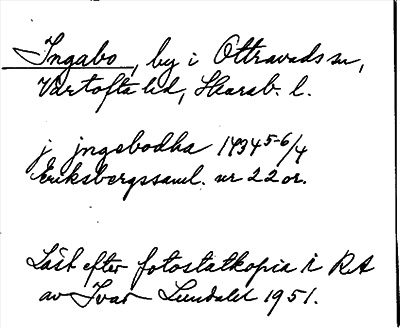 Ingabo, by i Ottravads sn,
Vartofta hd, Skarab. l.
j jngebodha 1434 5-6/4
Eriksbergssaml. nr 22 or.
Läst efter fotostatkopia i RA
av Ivar Lundahl 1951.